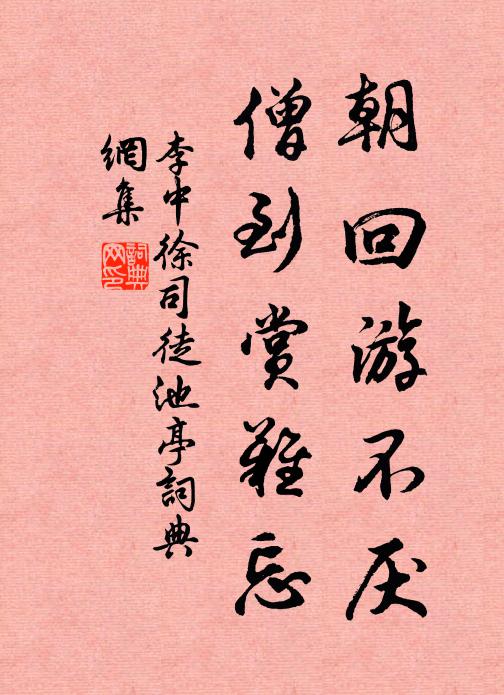 朝回游不厌
僧到赏難忘
李中徐司徒池亭詞典
網集
詞典
网印